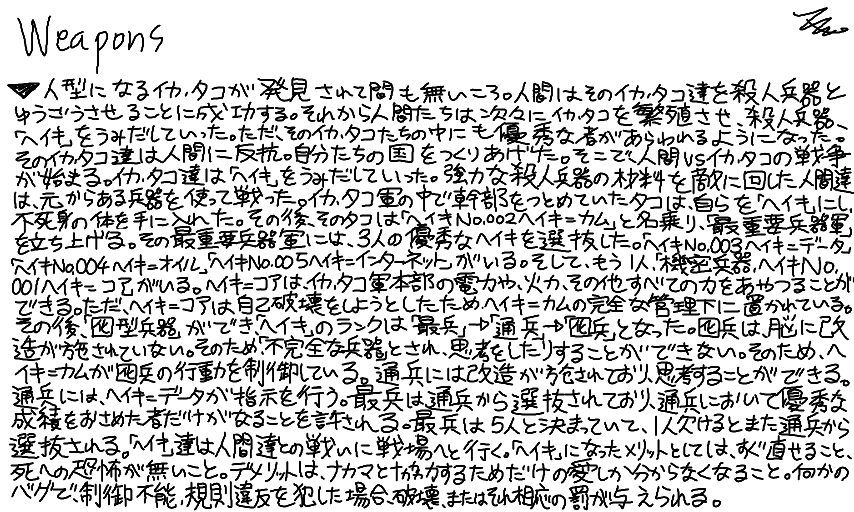 Weapons
▼人型になるイカ,タコが発見されて間も無いころ。人間はそのイカ,タコ達を殺人兵器と
ゆうごうさせることに成功する。それから人間たちは次々にイカ,タコを繁殖させ、殺人兵器、
「ヘイキ」をうみだしていった。ただ、そのイカ,タコたちの中にも優秀な者があらわれるようになった。
そのイカ,タコ達は人間に反抗。自分たちの国をつくりあげた。そこで、人間vsイカ,タコの戦争
が始まる。イカ,タコ達は「ヘイキ」をうみだしていった。強力な殺人兵器の材料を敵に回した人間達
は、元からある兵器を使って戦った。イカ,タコ軍の中で幹部をつとめていたタコは、自らを「ヘイキ」にし、
不死身の体を手に入れた。その後、そのタコは「ヘイキNo.002ヘイキ=カム」と名乗り、「最重要兵器軍」
を立ち上げる。その最重要兵器軍には、3人の優秀なヘイキを選抜した。「ヘイキNo.003ヘイキ=データ」
「ヘイキNo.004ヘイキ=オイル」「ヘイキNo.005ヘイキ=インターネット」がいる。そして、もう1人、「機密兵器、ヘイキNo.
001ヘイキ=コア」がいる。ヘイキ=コアは、イカ,タコ軍本部の電力や、火力、その他すべての力をあやつることが
できる。ただ、ヘイキ=コアは自己破壊をしようとしたため、ヘイキ=カムの完全な管理下に置かれている。
その後、「囮型兵器」ができ、「ヘイキ」のランクは「最兵」→「通兵」→「囮兵」となった。囮兵は、脳に改
造が施されていない。そのため「不完全な兵器」とされ、思考をしたりすることができない。そのため、ヘ
イキ=カムが囮兵の行動を制御している。通兵には改造が施されており、思考することができる。
通兵には、ヘイキ=データが指示を行う。最兵は通兵から選抜されており、通兵において優秀な
成績をおさめた者だけがなることを許される。最兵は5人と決まっていて、1人欠けるとまた通兵から
選抜される。「ヘイキ」達は人間達との戦いに戦場へと行く。「ヘイキ」になったメリットとしては、すぐ直せること、
死への恐怖が無いこと。デメリットは、ナカマと協力するためだけの愛しか分からなくなること。何かの
バグで、制御不能、規則違反を犯した場合、破壊、またはそれ相応の罰が与えられる。